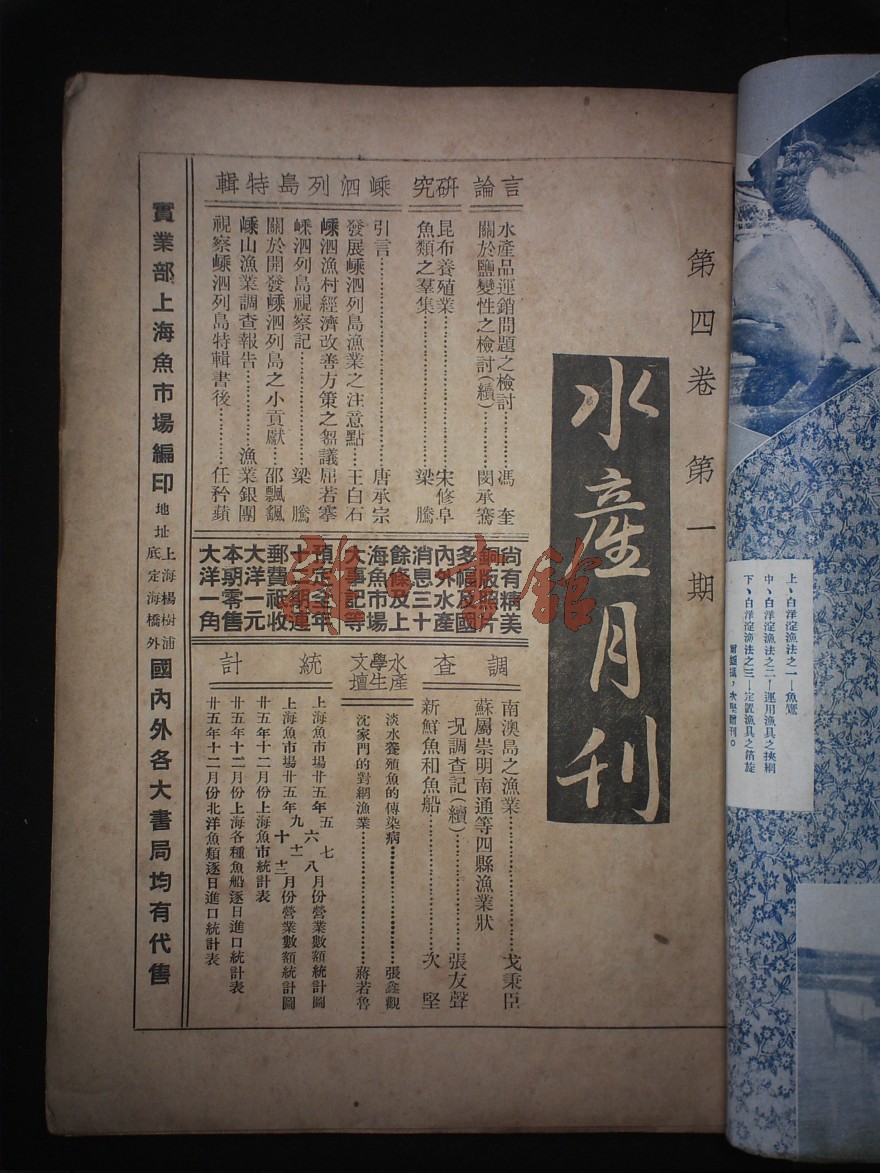 第四卷 第一期
水產月刊
言論
水產品運銷問題之檢討……馮奎
關於鹽變性之檢討(續)……閔承騫
研究
昆布養殖業……宋修阜
魚類之羣集……梁騰
嵊泗列島特輯
引言……唐承宗
發展嵊泗列島漁業之注意點……王白石
嵊泗漁村經濟改善方策之芻議 屈若搴
嵊泗列島視察記……梁騰
關於開發嵊泗列島之小貢獻……邵飄飄
嵊山漁業調查報告……漁業銀團
視察嵊泗列島特輯書後……任矜蘋
尚有精美
銅版照片
多幅及國
內外水產
消息三十
餘條及上
海魚市場
大事記等
預定全年
十二期連
郵費祗收
大洋一元
本期零售
大洋一角
調查
南澳島之漁業……戈秉臣
蘇屬崇明南通等四縣漁業狀
況調查記(續)……張友聲
新鮮魚和魚船……次堅
水產學生文壇
淡水養殖魚的傳染病……張鑫觀
沈家門的對網漁業……蔣若魯
統計
上海魚市場廿五年五六七八月份營業數額統計圖
上海魚市場廿五年九十十一十二月份營業數額統計圖
廿五年十二月份上海魚市統計表
廿五年十二月份上海各種魚船逐日進口統計表
廿五年十二月份北洋魚類逐日進口統計表
實業部上海魚市場編印 地址 上海楊樹浦底定海橋外 國內外各大書局均有代售
上、白洋淀漁法之一—魚鷹
中、白洋淀漁法之二—運用漁具之挾網
下、白洋淀漁法之三—定置漁具之箔旋